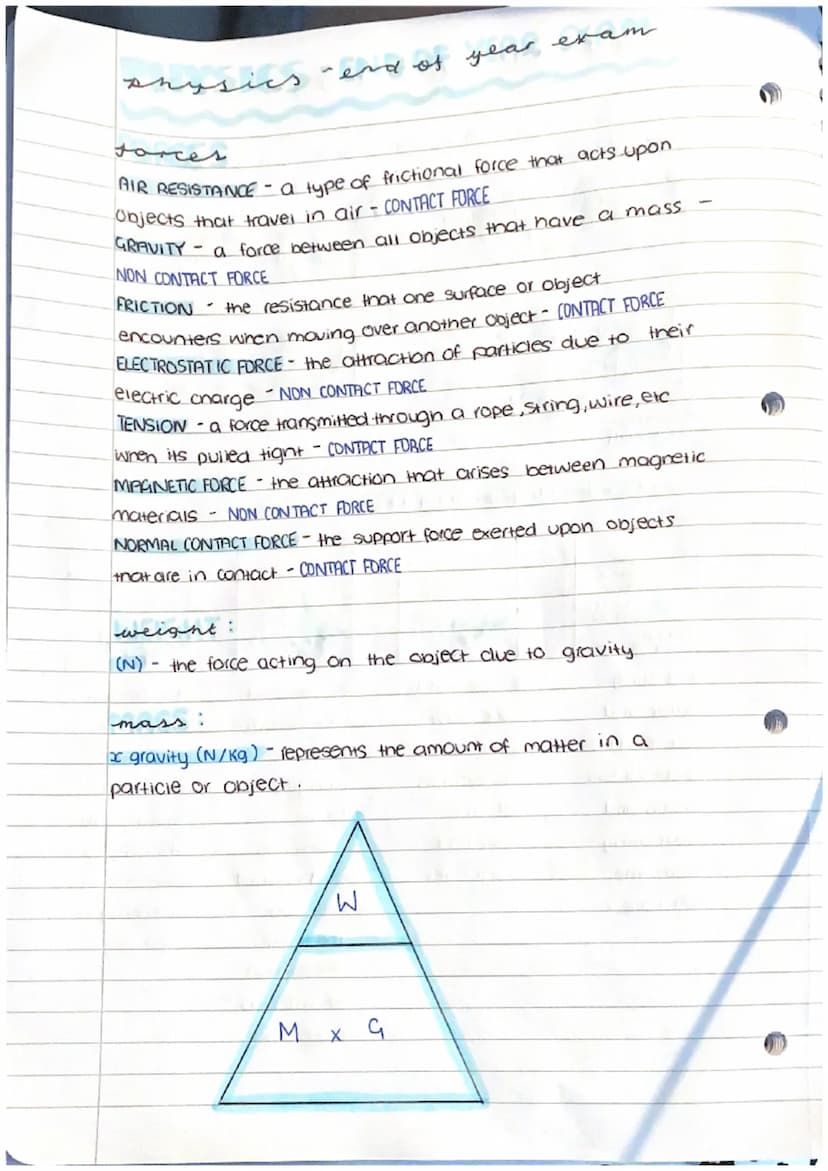 physics - end of year exam
forces
AIR RESISTANCE - a type of frictional force that acts upon
objects that travel in air - CONTACT FORCE
GRAVITY - a force between all objects that have a mass -
NON CONTACT FORCE
FRICTION - the resistance that one surface or object
encounters when moving over another object - CONTACT FORCE
ELECTROSTATIC FORCE - the attraction of particles due to their
electric charge - NON CONTACT FORCE
TENSION - a force transmitted through a rope, string, wire, etc
when its pulled tight - CONTACT FORCE
MAGNETIC FORCE - the attraction that arises between magnetic
materials - NON CONTACT FORCE
NORMAL CONTACT FORCE - the support force exerted upon objects
that are in contact - CONTACT FORCE
weight :
(N) - the force acting on the object due to gravity
mass :
x gravity (N/Kg) - represents the amount of matter in a
particle or object .
W
M x G